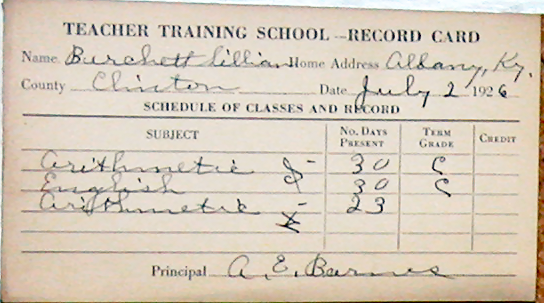 TEACHER TRAINING SCHOOL—RECORD CARD
Name Burchett Lillian Home Address Albany, Ky.
County Clinton Date July 2 1926
SCHEDULE OF CLASSES AND RECORD
SUBJECT No. Days Present Term Grade Credit
Arithmetic 30 C
English 30 C
Arithmetic 23
Principal A. E. Barnes